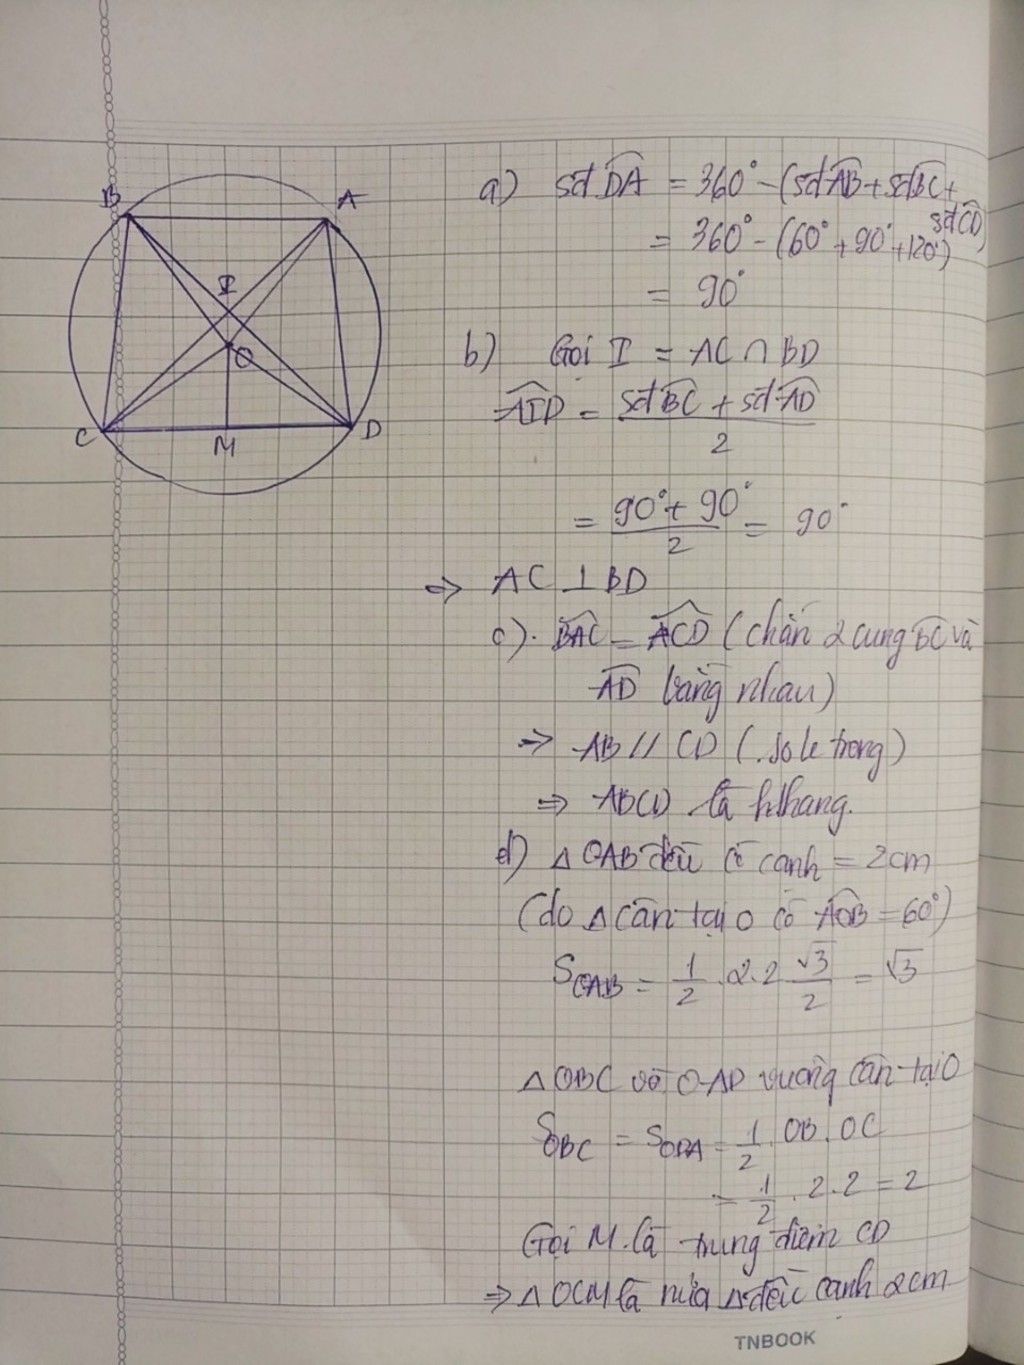 B
A
I
O
C
M
D
a) sđ DA = 360° - (sđ AB + sđ BC +
sđ CD)
= 360° - (60° + 90° + 120°)
= 90°
b) Gọi I = AC ∩ BD
AID = sđ BC + sđ AD
2
= 90° + 90° = 90°
2
=> AC ⊥ BD
c). BAC = ACD (chắn 2 cung BC và
AD bằng nhau)
=> AB // CD (. so le trong)
=> ABCD là hthang.
d) Δ OAB đều có cạnh = 2cm
(do Δ cân tại O có AOB = 60°)
S OAB = 1/2 . 2.2 √3/2 = √3
Δ OBC và OAD vuông cân tại O
S OBC = S ODA = 1/2 . OB . OC
= 1/2 . 2 . 2 = 2
Gọi M là trung điểm CD
=> Δ OCM là nửa Δ đều cạnh 2cm
TNBOOK